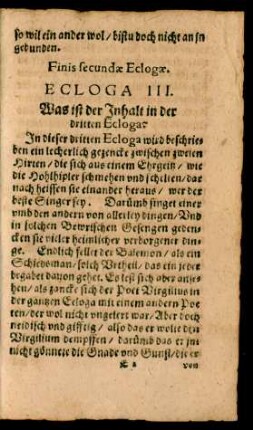 so wil ein ander wol / bistu doch nicht an jn
gebunden.
Finis secundæ Eclogæ.
ECLOGA III.
Was ist der Inhalt in der
dritten Ecloga?
In dieser dritten Ecloga wird beschrie-
ben ein lecherlich gezencke zwischen zweien
Hirten / die sich aus einem Ehrgein / wie
die Hohlhipler schmehen vnd schelten / dar
nach heissen sie einander heraus / wer der
beste Singer sey. Darümb singet einer
vmb den andern von allerley dingen / Vnd
in solchen Bewrischen Gesengen geden-
cken sie vieler heimlicher verborgener din-
ge. Endlich fellet der Palemon / als ein
Schiedsman / solch Vrtheil / das ein jeder
begabet dauon gehet. Es lest sich aber anse-
hen / als zancke sich der Poet Virgilius in
der gantzen Ecloga mit einem andern Poe
ten / der wol nicht vngelert war / Aber doch
neidisch vnd gifftig / also das er wolte den
Virgilium dempffen / darümb das er jm
nicht gönnete die Gnade vnd Gunst / die er
von